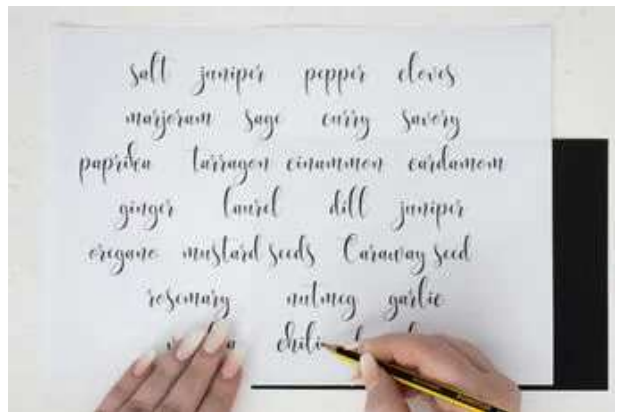 salt juniper pepper cloves
marjoram sage curry savory
paprika tarragon cinammon cardamom
ginger laurel dill juniper
oregano mustard seeds Caraway seed
rosemary nutmeg garlic
chili